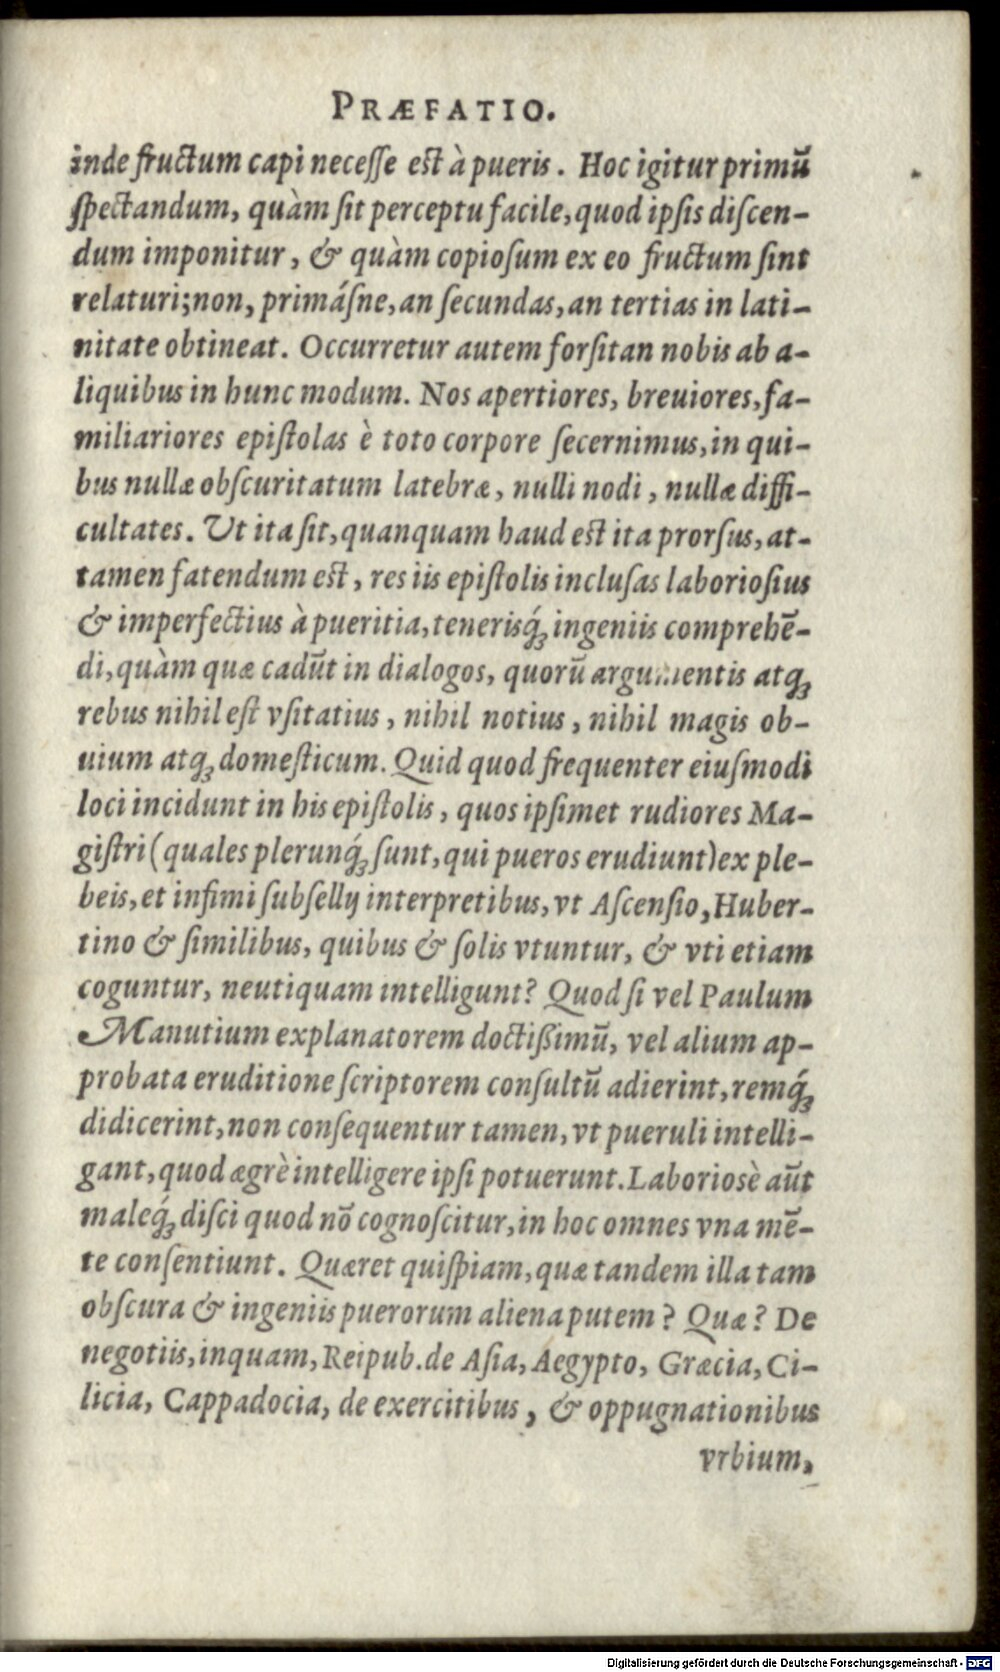 PRÆFATIO.
inde fructum capi neceſſe est à pueris. Hoc igitur primū
ſpectandum, quàm ſit perceptu facile, quod ipſis diſcen-
dum imponitur, & quàm copioſum ex eo fructum ſint
relaturi; non, primáſne, an ſecundas, an tertias in lati-
nitate obtineat. Occurretur autem forſitan nobis ab a-
liquibus in hunc modum. Nos apertiores, breuiores, fa-
miliariores epiſtolas è toto corpore ſecernimus, in qui-
bus nullæ obſcuritatum latebræ, nulli nodi, nullæ diffi-
cultates. Ut ita ſit, quanquam haud est ita prorſus, at-
tamen fatendum est, res iis epiſtolis incluſas laborioſius
& imperfectius à pueritia, teneriſq́ꝫ ingeniis comprehē-
di, quàm quæ cadūt in dialogos, quorū argumentis atqꝫ
rebus nihil est vſitatius, nihil notius, nihil magis ob-
uium atqꝫ domeſticum. Quid quod frequenter eiuſmodi
loci incidunt in his epiſtolis, quos ipſimet rudiores Ma-
giſtri (quales plerunq́ꝫ ſunt, qui pueros erudiunt) ex ple-
beis, et infimi ſubſellij interpretibus, vt Aſcenſio, Huber-
tino & ſimilibus, quibus & ſolis vtuntur, & vti etiam
coguntur, neutiquam intelligunt? Quod ſi vel Paulum
Manutium explanatorem doctiſsimū, vel alium ap-
probata eruditione ſcriptorem conſultū adierint, remq́ꝫ
didicerint, non conſequentur tamen, vt pueruli intelli-
gant, quod ægrè intelligere ipſi potuerunt. Laboriosè aūt
maleq́ꝫ diſci quod nō cognoſcitur, in hoc omnes vna mē-
te conſentiunt. Quæret quiſpiam, quæ tandem illa tam
obſcura & ingeniis puerorum aliena putem? Quæ? De
negotiis, inquam, Reipub. de Aſia, Aegypto, Græcia, Ci-
licia, Cappadocia, de exercitibus, & oppugnationibus
vrbium,
Digitalisierung gefördert durch die Deutsche Forschungsgemeinschaft - DFG